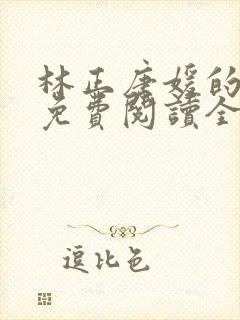 林正唐媛的
免費閱讀全
逗比色